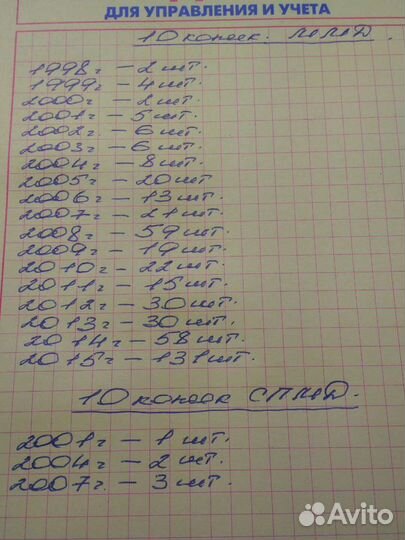 ДЛЯ УПРАВЛЕНИЯ И УЧЕТА
10 копеек. ММД.
1998г – 2 шт.
1999г – 4 шт.
2000г – 2 шт.
2001г – 5 шт.
2002г – 6 шт.
2003г – 6 шт.
2004г – 8 шт.
2005г – 20 шт
2006г – 13 шт.
2007г – 21 шт.
2008г – 59 шт.
2009г – 19 шт.
2010г – 22 шт.
2011г – 15 шт.
2012г – 30 шт.
2013г – 30 шт.
2014г – 58 шт.
2015г – 131 шт.
10 копеек СПМД.
2001г – 1 шт.
2004г – 2 шт.
2007г. – 3 шт.
Avito